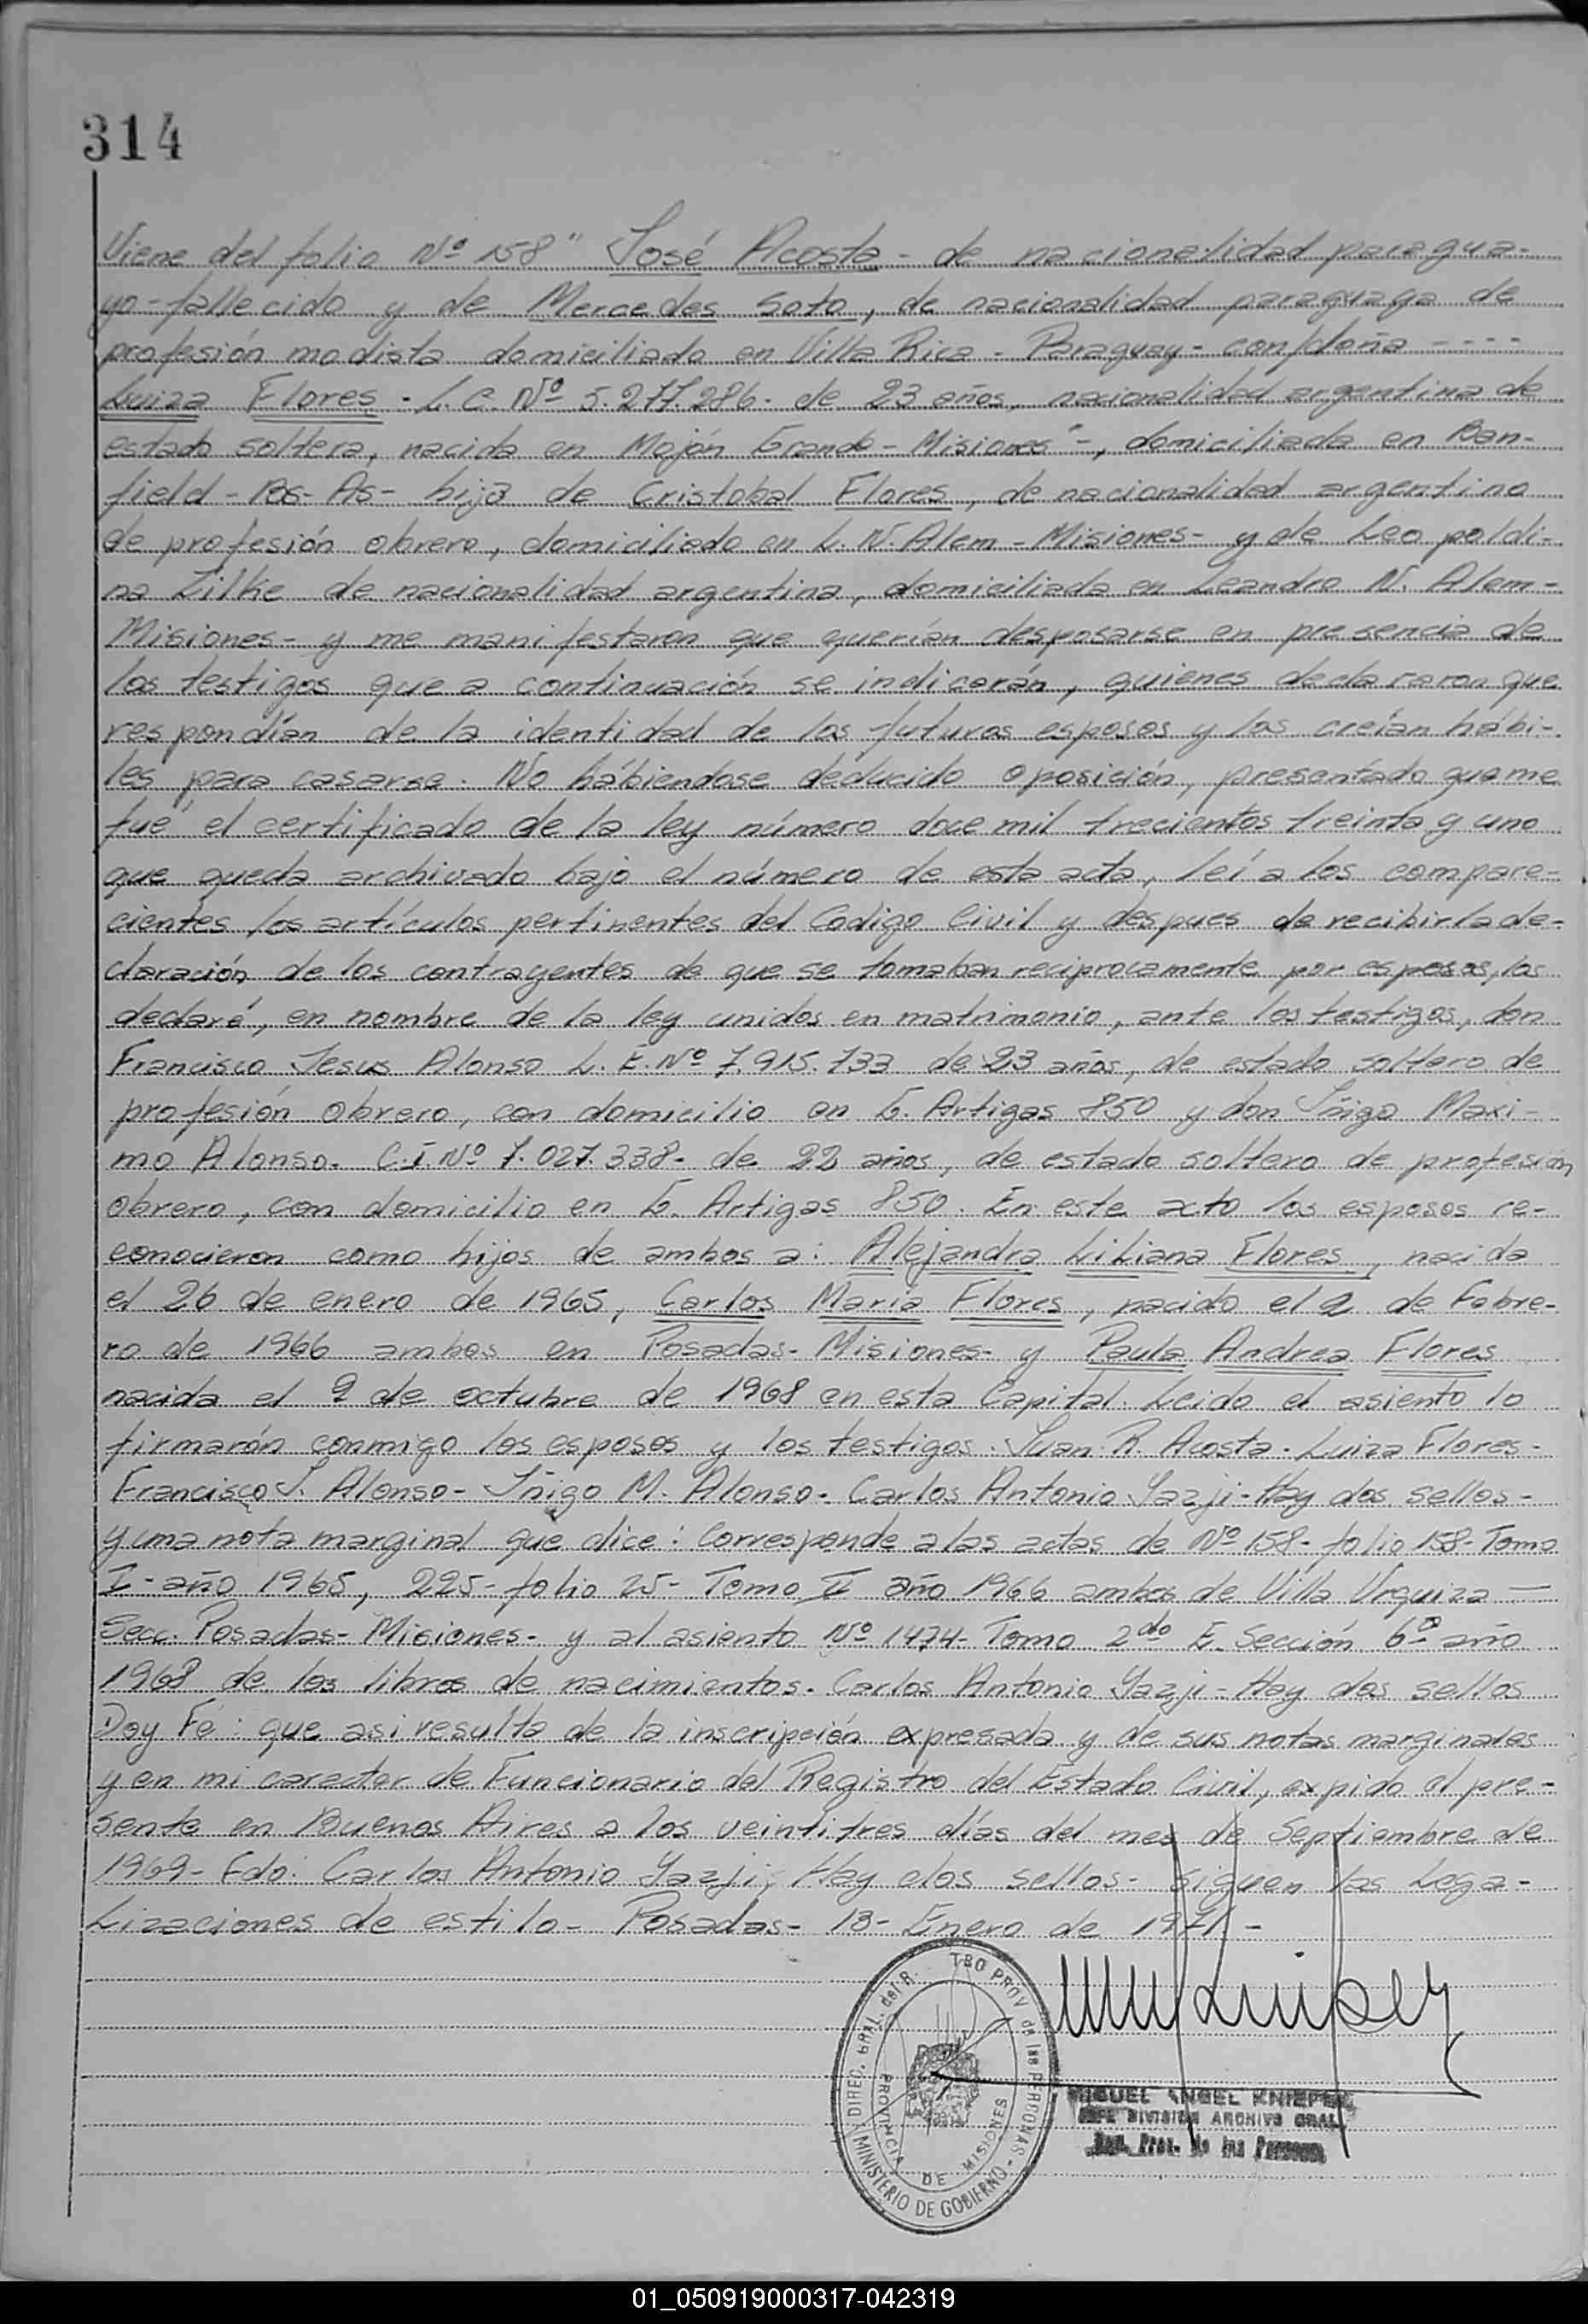 314
Viene del folio Nº 158" José Acosta - de nacionalidad paragua-
yo - fallecido y de Mercedes Soto, de nacionalidad paraguaya de
profesión modista domiciliado en Villa Rica - Paraguay - con/doña ----
Luiza Flores - L.C. Nº 5.277.286. de 23 años, nacionalidad argentina de
estado soltera, nacida en Mojón Grande - Misiones"-, domiciliada en Ban-
field - Bs - As - hija de Cristobal Flores, de nacionalidad argentino
de profesión obrero, domiciliado en L. N. Alem - Misiones - y de Leopoldi-
na Zilke de nacionalidad argentina, domiciliada en Leandro N. Alem -
Misiones - y me manifestaron que querían desposarse en presencia de
los testigos que a continuación se indicarán, quienes declararon que
respondían de la identidad de los futuros esposos y los creían hábi-
les para casarse. No hábiendose deducido oposición, presentado que me
fué el certificado de la ley número doce mil trecientos treinta y uno
que queda archivado bajo el número de esta acta, leí a los compare-
cientes los artículos pertinentes del Codigo Civil y despues de recibir la de-
claración de los contrayentes de que se tomaban reciprocamente por esposos, los
declaré, en nombre de la ley unidos en matrimonio, ante los testigos, don
Francisco Jesus Alonso L. E. Nº 7.915.733 de 23 años, de estado soltero de
profesión obrero, con domicilio en G. Artigas 850 y don Iñigo Maxi-
mo Alonso. C.I. Nº 7.027.338- de 22 años, de estado soltero de profesión
obrero, con domicilio en G. Artigas 850. En este acto los esposos re-
conocieron como hijos de ambos a: Alejandra Liliana Flores, nacida
el 26 de enero de 1965, Carlos María Flores, nacido el 2 de Febre-
ro de 1966 ambos en Posadas - Misiones - y Paula Andrea Flores
nacida el 9 de octubre de 1968 en esta Capital. Leido el asiento lo
firmarón conmigo los esposos y los testigos. Juan R. Acosta - Luiza Flores -
Francisco J. Alonso - Iñigo M. Alonso - Carlos Antonio Yazji - Hay dos sellos -
y una nota marginal que dice: Corresponde a las actas de Nº 158 - folio 158 - Tomo
I - año 1965, 225 - folio 25 - Tomo II año 1966 ambos de Villa Urquiza -
Secc. Posadas - Misiones - y al asiento Nº 1474 - Tomo 2do E. Sección 6ª año
1968 de los libros de nacimientos. Carlos Antonio Yazji - Hay dos sellos
Doy Fé: que asi resulta de la inscripción expresada y de sus notas marginales
y en mi caracter de Funcionario del Registro del Estado Civil, expido el pre-
sente en Buenos Aires a los veintitres días del mes de Septiembre de
1969 - Fdo: Carlos Antonio Yazji, Hay dos sellos - siguen las Lega-
Lizaciones de estilo - Posadas - 13 - Enero de 1971 -
MINISTERIO DE GOBIERNO - DIREC. GRAL. del R. TRO PROV de las PERSONAS
PROVINCIA DE MISIONES
MIGUEL ANGEL KNIEPER
JEFE DIVISION ARCHIVO GRAL
Reg. Prov. de las Personas
01_050919000317-042319